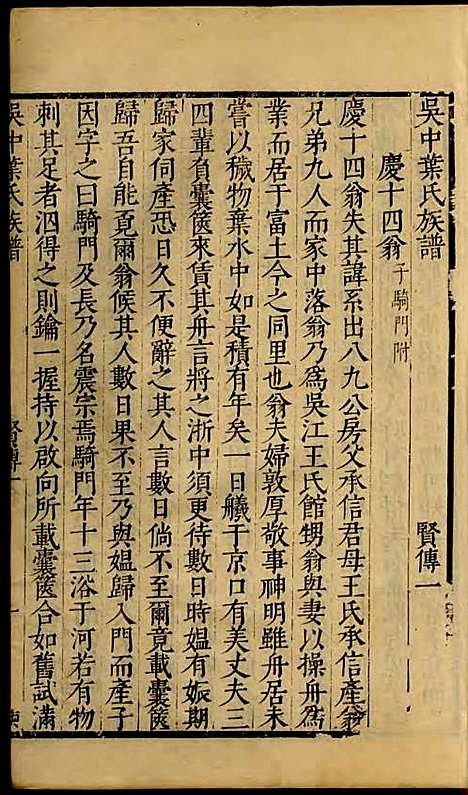 吳中葉氏族譜 賢傳一
慶十四翁 子騎門附
慶十四翁失其諱系出八九公房父承信君母王氏承信產翁
兄弟九人而家中落翁乃為吳江王氏館甥翁與妻以操舟為
業而居于富土今之同里也翁夫婦敦厚敬事神明雖舟居未
嘗以穢物棄水中如是積有年矣一日艤于京口有美丈夫三
四輩負囊篋來賃其舟言將之浙中須更待數日時媼有娠期
歸家伺產恐日久不便辭之其人言數日倘不至爾竟載囊篋
歸吾自能覓爾翁候其人數日果不至乃與媼歸入門而產子
因字之曰騎門及長乃名震宗焉騎門年十三浴于河若有物
刺其足者泅得之則鑰一握持以啟向所載囊篋合如舊試滿
吳中葉氏族譜 賢傳一 一